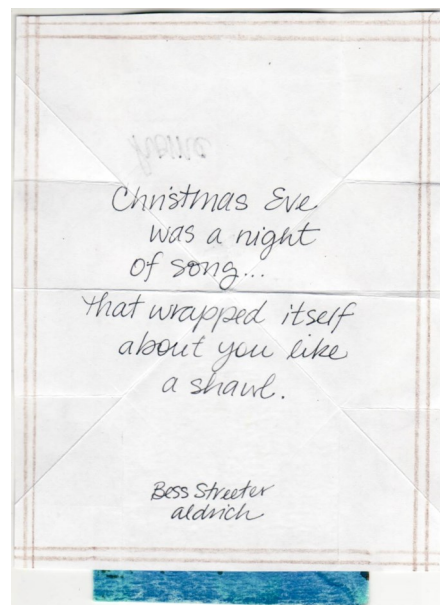 home
Christmas Eve
was a night
of song...
that wrapped itself
about you like
a shawl.
Bess Streeter
aldrich